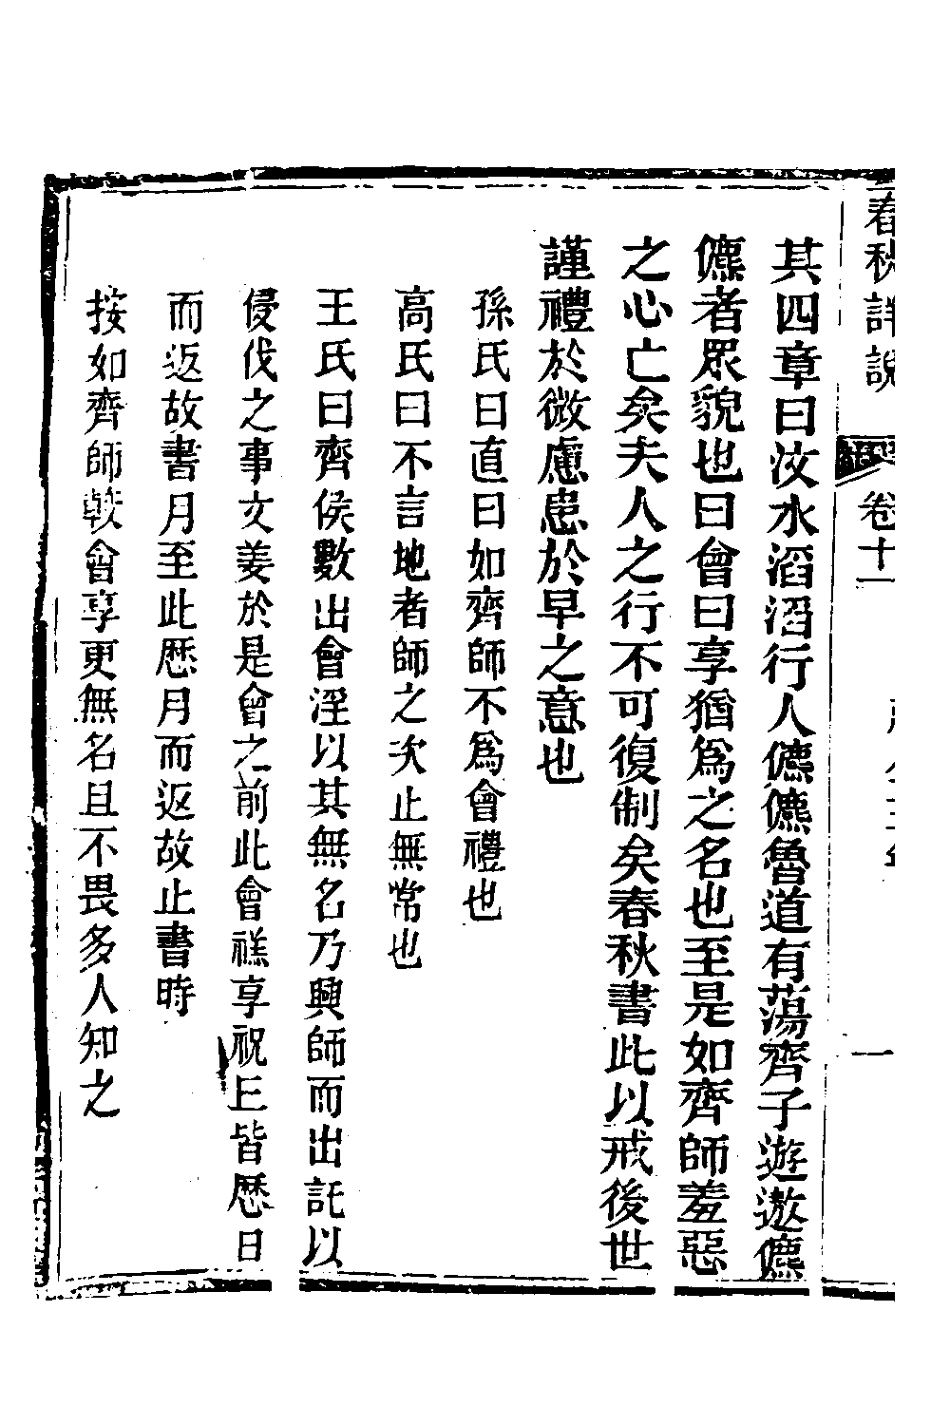 春秋詳說 卷十一 一
其四章曰汶水滔滔行人儦儦魯道有蕩齊子遊遨儦
儦者眾貌也曰會曰享猶爲之名也至是如齊師羞惡
之心亡矣夫人之行不可復制矣春秋書此以戒後世
謹禮於微慮患於早之意也
孫氏曰直曰如齊師不爲會禮也
高氏曰不言地者師之次止無常也
王氏曰齊侯數出會淫以其無名乃興師而出託以
侵伐之事文姜於是會之前此會禚享祝丘皆歷日
而返故書月至此歷月而返故止書時
按如齊師較會享更無名且不畏多人知之